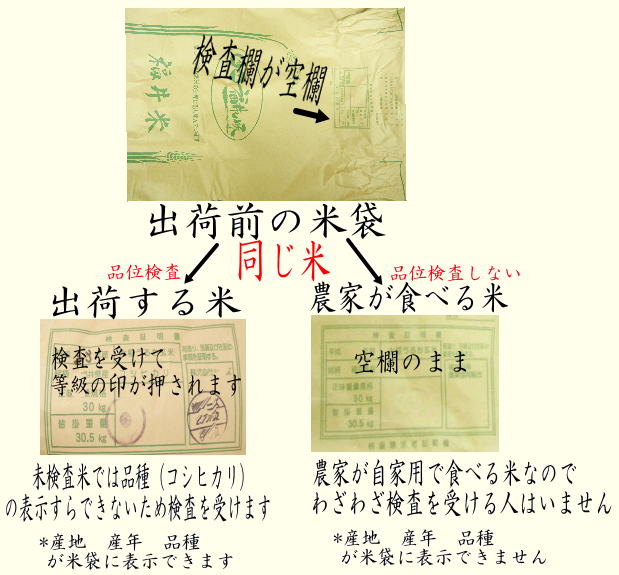 検査欄が空欄
福井米
出荷前の米袋
同じ米
品位検査
品位検査しない
出荷する米
農家が食べる米
検査証明書
検査を受けて
等級の印が押されます
30 kg
皆掛重量
30.5 kg
検査証明書
空欄のまま
正味重量
30 kg
皆掛重量
30.5 kg
未検査米では品種（コシヒカリ）
の表示すらできないため検査を受けます
*産地　産年　品種
が米袋に表示できます
農家が自家用で食べる米なので
わざわざ検査を受ける人はいません
*産地　産年　品種
が米袋に表示できません